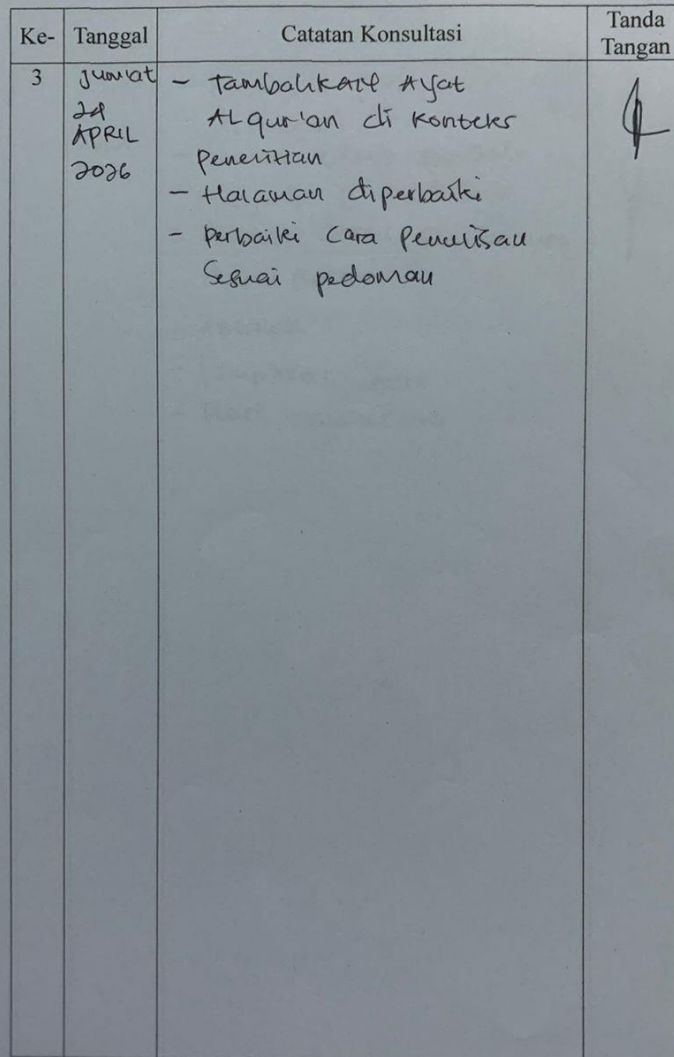 Ke- Tanggal Catatan Konsultasi Tanda Tangan
3 Jum'at - Tambahkan Ayat
24 Al qur'an di Konteks
APRIL penelitian
2026 - Halaman diperbaiki
- perbaiki Cara Penulisan
Sesuai pedoman